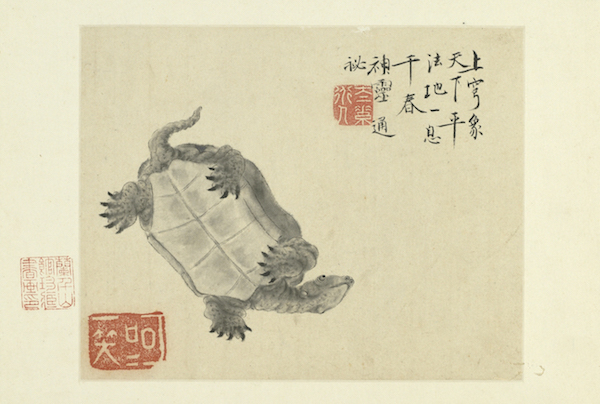 上穹象
天下平
法地一息
千春
神靈通
祕
呵〻
一笑